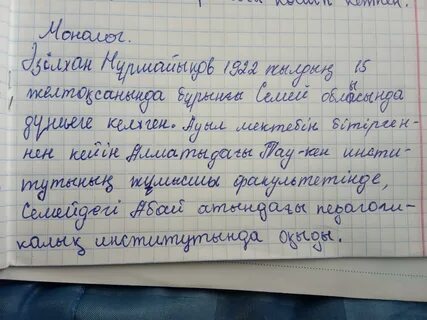 Монолог.
Әзілхан Нұрмайықов 1922 жылдың 15
желтоқсанында бұрынғы Семей облысында
дүниеге келген. Ауыл мектебін бітірген-
нен кейін Алматыдағы Тау-кен инсти-
тутының жұмысшы факультетінде,
Семейдегі Абай атындағы педагоги-
калық институтында оқыды.